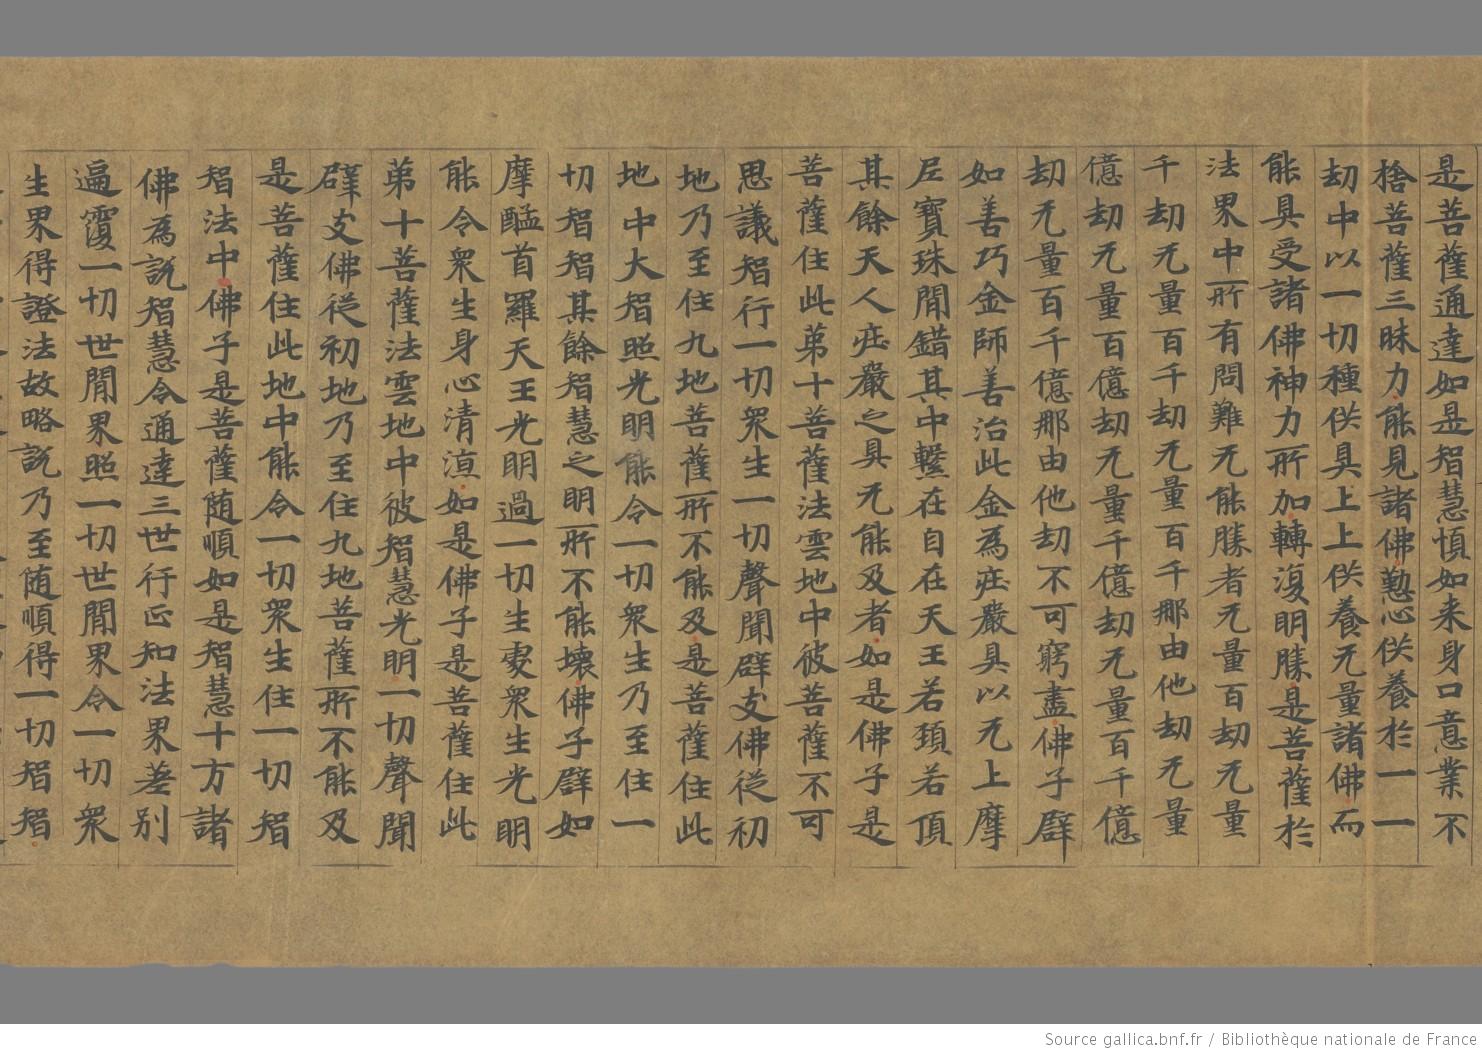 是菩薩通達如是智慧慎如来身口意業不
捨菩薩三昧力能見諸佛懃心供養於一一
劫中以一切種供具上上供養无量諸佛而
能具受諸佛神力所加轉復明勝是菩薩於
法界中所有問難无能勝者无量百劫无量
千劫无量百千劫无量百千那由他劫无量
億劫无量百億劫无量千億劫无量百千億
劫无量百千億那由他劫不可窮盡佛子辟
如善巧金師善治此金為庄嚴具以无上摩
尼寶珠閒錯其中繫在自在天王若頚若頂
其餘天人庄嚴之具无能及者如是佛子是
菩薩住此弟十菩薩法雲地中彼菩薩不可
思議智行一切衆生一切聲聞辟支佛從初
地乃至住九地菩薩所不能及是菩薩住此
地中大智照光明能令一切衆生乃至住一
切智智其餘智慧之明所不能壊佛子辟如
摩醯首羅天王光明過一切生處衆生光明
能令衆生身心清涼如是佛子是菩薩住此
弟十菩薩法雲地中彼智慧光明一切聲聞
辟支佛從初地乃至住九地菩薩所不能及
是菩薩住此地中能令一切衆生住一切智
智法中佛子是菩薩随順如是智慧十方諸
佛為説智慧令通達三世行正知法界差别
遍覆一切世閒界照一切世閒界令一切衆
生界得證法故略説乃至随順得一切智智
Source gallica.bnf.fr / Bibliothèque nationale de France